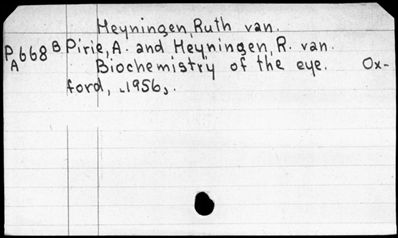 Heyningen, Ruth van.
PA668 B Pirie, A. and Heyningen, R. van.
Biochemistry of the eye. Ox-
ford, [1956].